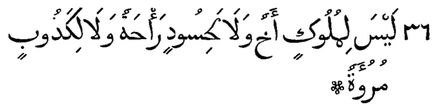 ٣٦ لَيْسَ لِمُلُوكٍ أَخٌ وَلَا لِحَسُودٍ رَاحَةٌ وَلَا لِكَذُوبٍ
مُرُوَّةٌ ❊